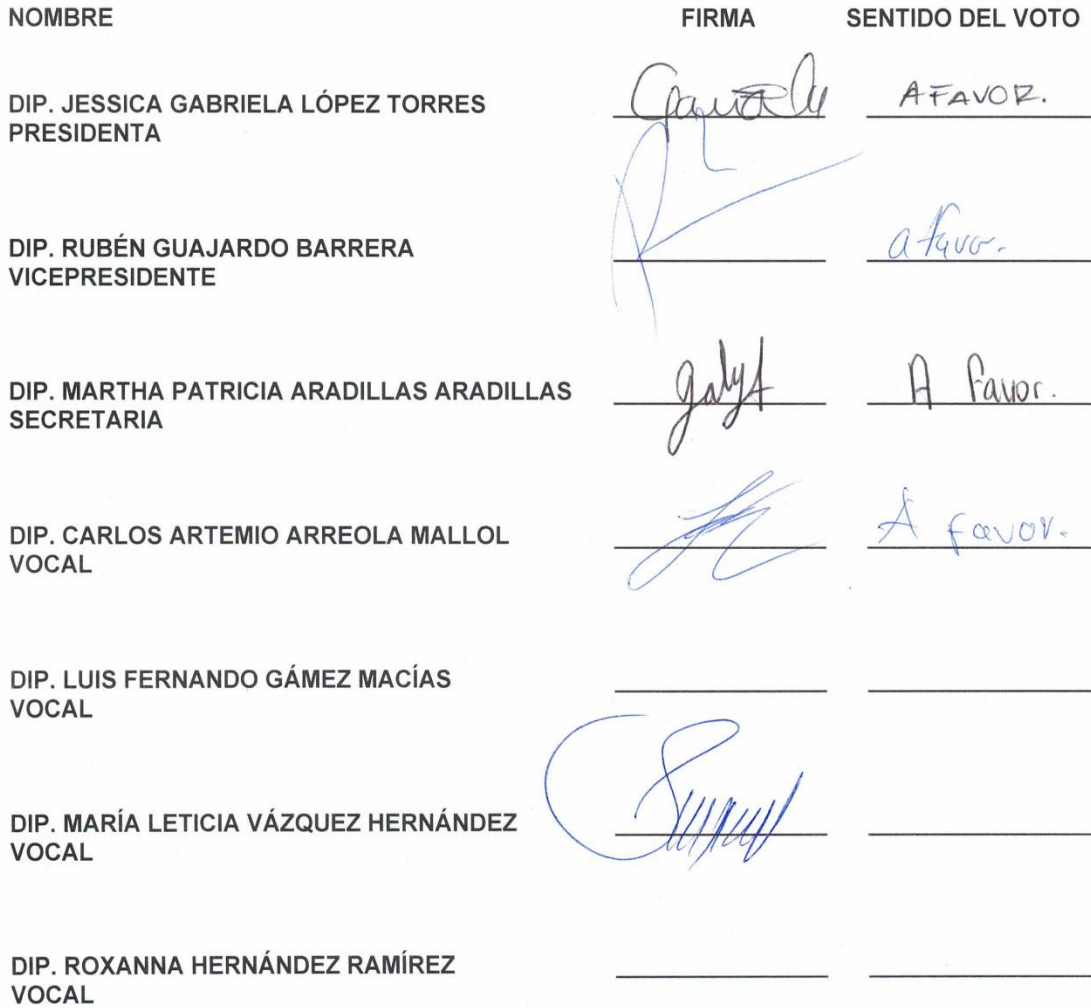 NOMBRE FIRMA SENTIDO DEL VOTO
DIP. JESSICA GABRIELA LÓPEZ TORRES A FAVOR.
PRESIDENTA
DIP. RUBÉN GUAJARDO BARRERA a favor.
VICEPRESIDENTE
DIP. MARTHA PATRICIA ARADILLAS ARADILLAS A favor.
SECRETARIA
DIP. CARLOS ARTEMIO ARREOLA MALLOL A favor.
VOCAL
DIP. LUIS FERNANDO GÁMEZ MACÍAS
VOCAL
DIP. MARÍA LETICIA VÁZQUEZ HERNÁNDEZ
VOCAL
DIP. ROXANNA HERNÁNDEZ RAMÍREZ
VOCAL